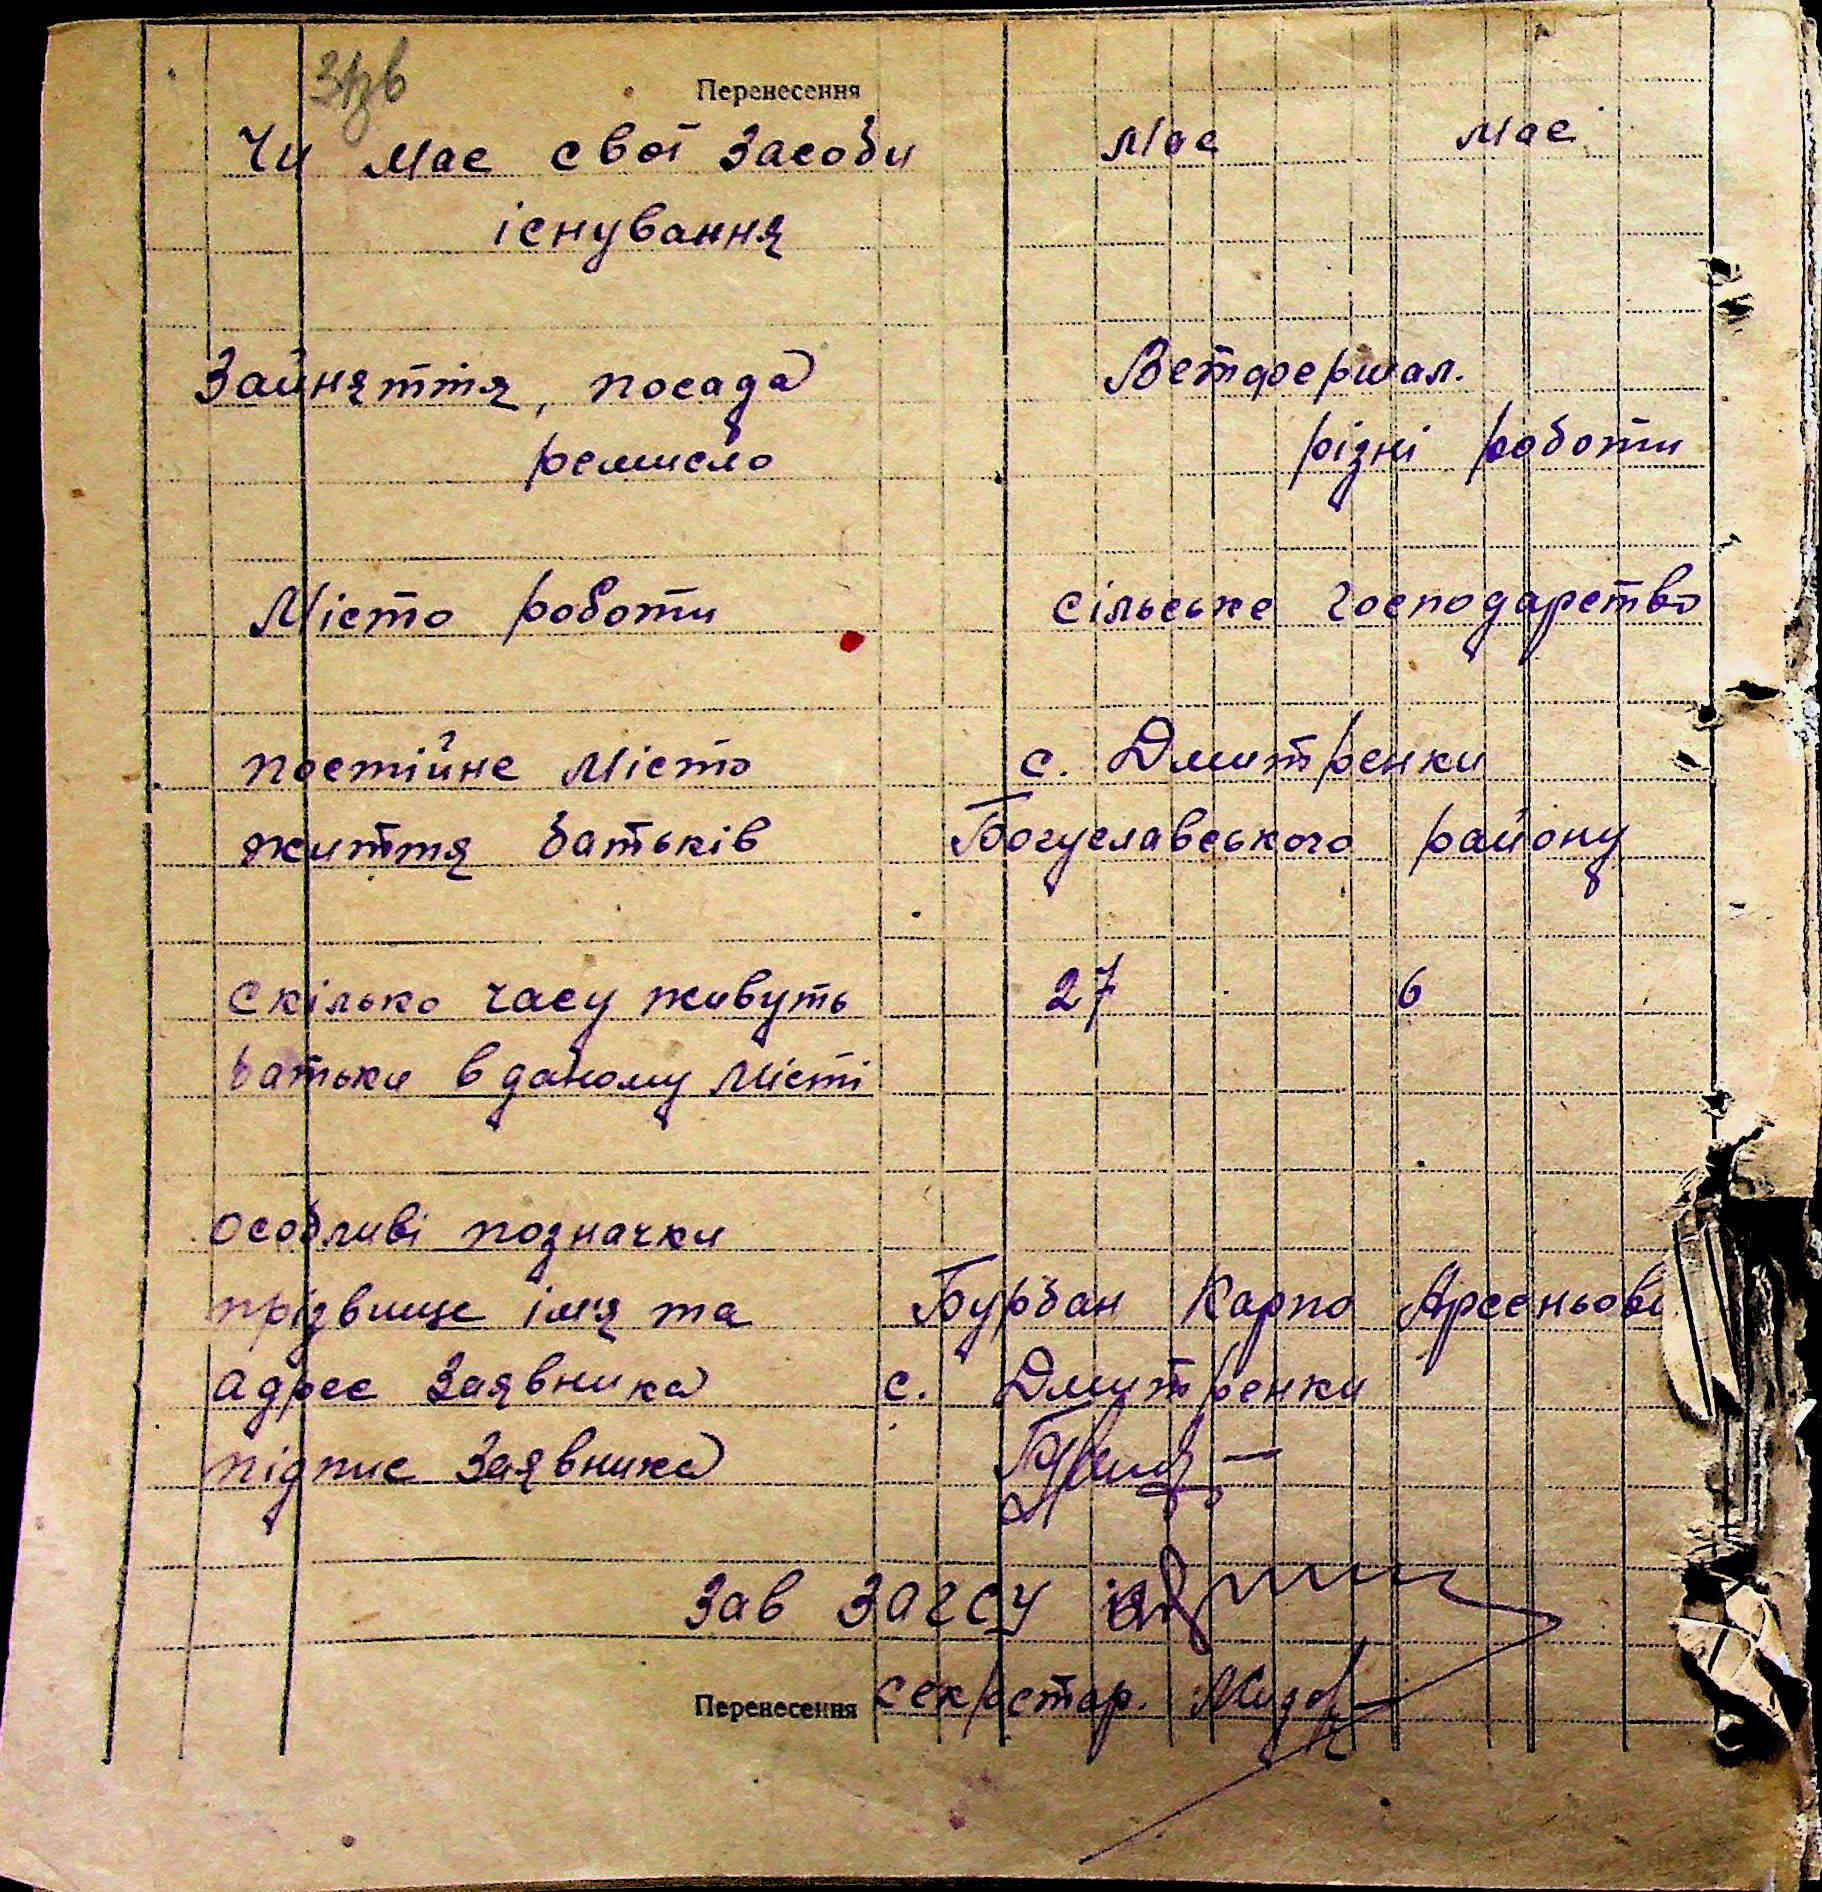 Перенесення
Чи має свої засоби має має
існування
Зайняття, посада Ветфершал.
ремисло різні роботи
Місто роботи сільське господарство
постійне місто с. Дмитренки
життя батьків Богуславського району
скілько часу живуть 27 6
батьки в даному місті
особливі позначки
прізвище імя та Бурбан Карпо Арсеньови
адрес заявника с. Дмитренки
підпис заявника
Зав ЗАГСУ
Перенесення секретар.